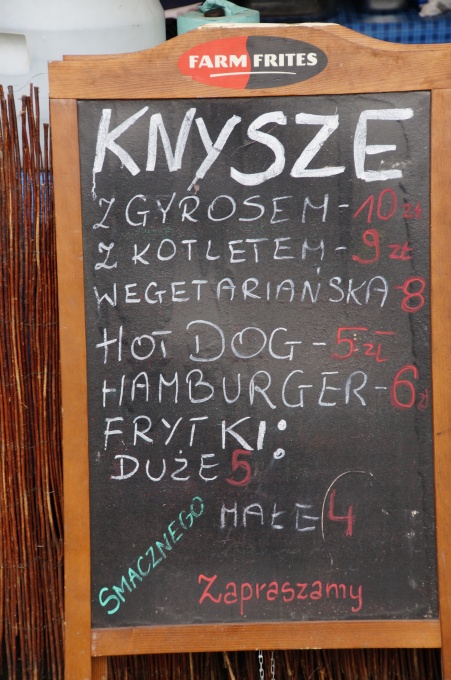 FARM FRITES
KNYSZE
Z GYROSEM - 10 zł
Z KOTLETEM - 9 zł
WEGETARIAŃSKA - 8
HOT DOG - 5 zł
HAMBURGER - 6 zł
FRYTKI:
DUŻE 5
MAŁE 4
SMACZNEGO
Zapraszamy